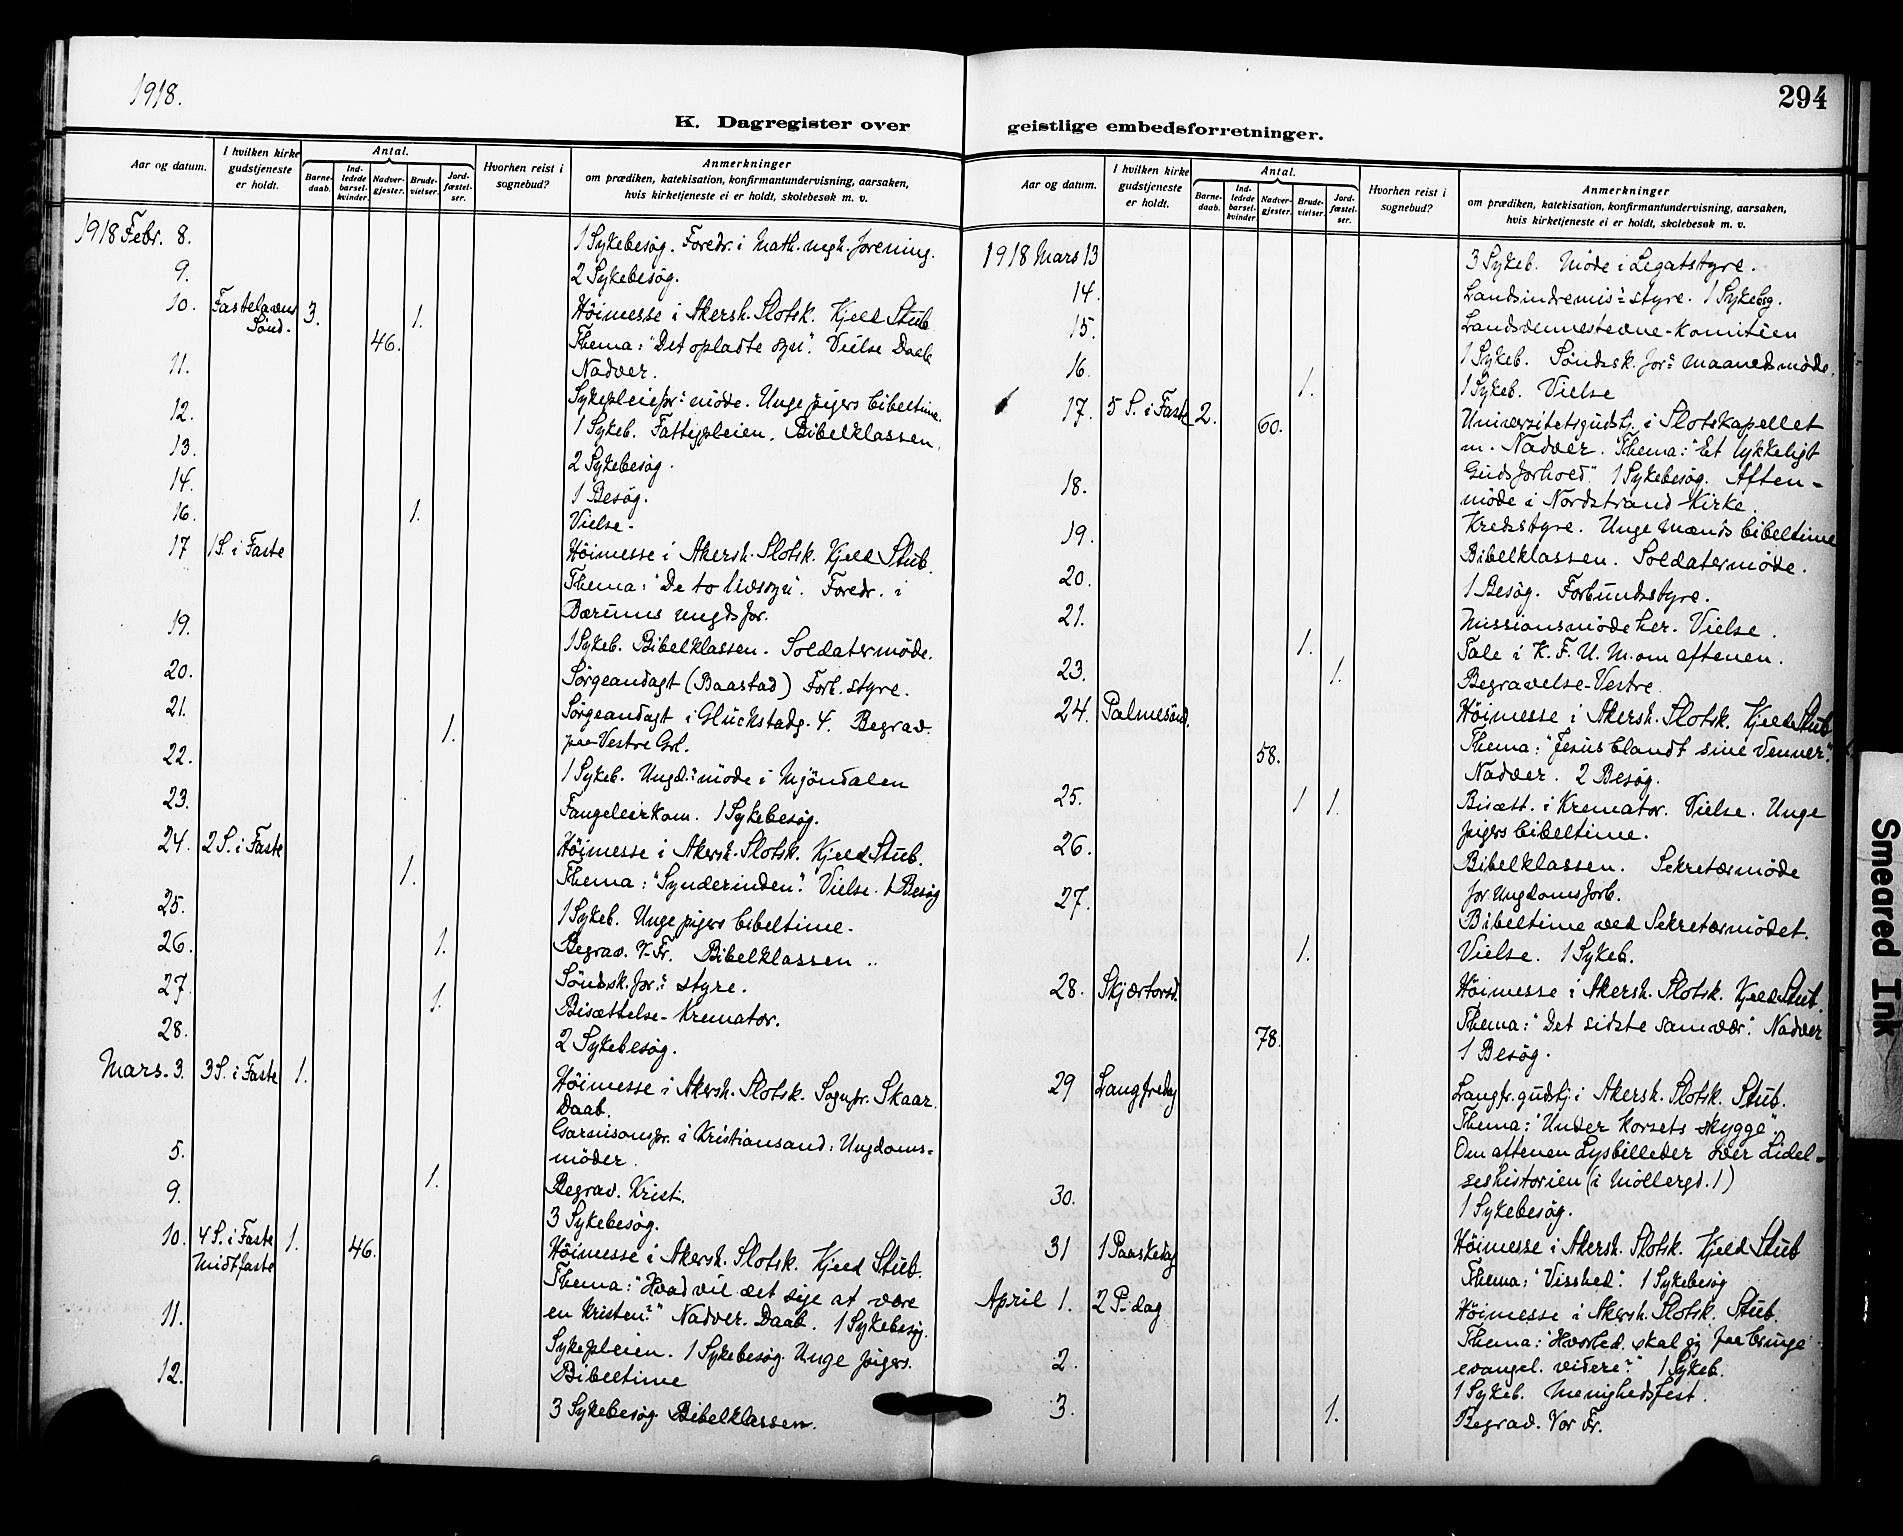 1918.
K. Dagregister over
Aar og datum.
I hvilken kirke gudstjeneste er holdt.
Antal.
Barne-daab.
Ind-ledede barsel-kvinder.
Nadver-gjester.
Brude-vielser.
Jord-fæstel-ser.
Hvorhen reist i sognebud?
Anmerkninger
om prædiken, katekisation, konfirmantundervisning, aarsaken,
hvis kirketjeneste ei er holdt, skolebesøk m. v.
1918 Febr. 8. 1 Sykebesøg. Foredr. i Math. forening.
9. 2 Sykebesøg.
10. Fastelavns Sønd. 3. 1. Høimesse i Akersh. Slotsk. Kjeld Stub
46. Thema: "Det opladte syn". Vielse Daab
Nadver.
11. Sykepleiefor: møde. Unge pigers bibeltime.
12. 1 Sykeb. Fattigpleien. Bibelklassen.
13. 2 Sykebesøg.
14. 1 Besøg.
16. 1. Vielse.
17 1 S. i Faste Høimesse i Akersh. Slotsk. Kjeld Stub.
Thema: "De to livssyn". Foredr. i
Bærums ungdsfor.
19. 1 Sykeb. Bibelklassen. Soldatermøde.
20. Sørgeandagt (Baastad) Forb. styre.
21. 1. Sørgeandagt i Glückstadg. 4. Begrav.
paa Vestre Grl.
22. 1 Sykeb. Ungd: møde i Mjöndalen
23. Fangeleirkom. 1 Sykebesøg.
24. 2 S. i Faste Høimesse i Akersh. Slotsk. Kjeld Stub.
1. Thema: "Synderinden". Vielse. 1 Besøg
25. 1 Sykeb. Unge pigers bibeltime.
26. 1. Begrav. V. Fr. Bibelklassen
27. Søndsk. for: styre.
1. Bisættelse - Kremator.
28. 2 Sykebesøg.
Mars. 3. 3 S. i Faste 1. Høimesse i Akersh. Slotsk. Sognepr. Skaar.
Daab.
5. Garnisonspr. i Kristiansand: Ungdoms-
møder.
9. 1. Begrav. Krist.
3 Sykebesøg.
10. 4 S. i Faste Midtfaste 1. 46. Høimesse i Akersh. Slotsk. Kjeld Stub.
Thema: "Hvad vil det sige at være
en kristen?" Nadver. Daab. 1 Sykebesøg.
11. Sykepleien. 1 Sykebesøg. Unge pigers.
Bibeltime
12. 3 Sykebesøg Bibelklassen.
294
geistlige embedsforretninger.
Aar og datum.
I hvilken kirke gudstjeneste er holdt.
Antal.
Barne-daab.
Ind-ledede barsel-kvinder.
Nadver-gjester.
Brude-vielser.
Jord-fæstel-ser.
Hvorhen reist i sognebud?
Anmerkninger
om prædiken, katekisation, konfirmantundervisning, aarsaken,
hvis kirketjeneste ei er holdt, skolebesøk m. v.
1918 Mars 13 3 Sykeb. Møde i Legatstyre.
14. Landsindremis: styre. 1 Sykebsg.
15. Landsvennestevne-komitéen
16. 1 Sykeb. Søndsk. for: maanedsmøde.
1. 1 Sykeb. Vielse
17. 5 S. i Faste 2. 60. Universitetsgudstj. i Slotskapellet
m. Nadver. Thema: "Et lykkeligt
Gudsforhold" 1 Sykebesøg. Aften-
18. møde i Nordstrand Kirke.
Kredsstyre. Unge Mænds bibeltime
19. Bibelklassen. Soldatermøde.
20. 1 Besøg. Forbundsstyre.
21. Missionsmøde her. Vielse.
1. Tale i K. F. U. M. om aftenen.
23. 1. Begravelse - Vestre
24. Palmesønd. Høimesse i Akersh. Slotsk. Kjeld Stub
58. Thema: "Jesus blandt sine venner".
Nadver. 2 Besøg.
25. 1 1. Bisætt. i Kremator. Vielse. Unge
pigers bibeltime.
26. Bibelklassen. Sekretærmøde
for Ungdomsforb.
27. Bibeltime ved Sekretærmødet.
1. Vielse. 1 Sykeb.
28. Skjærtorsd. Høimesse i Akersh. Slotsk. Kjeld Stub.
78. Thema: "Det sidste samvær". Nadver
1 Besøg.
29 Langfredag Langfr. gudstj. i Akersh. Slotsk. Stub.
Thema: "Under Korsets skygge".
Om aftenen Lysbilleder over Lidel-
seshistorien (i Møllergd. 1)
30. 1 Sykebesøg.
31 1 Paaskedag Høimesse i Akersh. Slotsk. Kjeld Stub
Thema: "Visshed". 1 Sykebesøg
April 1. 2 P. dag Høimesse i Akersh. Slotsk. Stub.
Thema: "Hvorled. skal jeg faa bringe
evangel. videre?" 1 Sykeb.
2. 1 Sykeb. Menighedsfest.
3. 1. Begrav. Vor Fr.
Smeared Ink